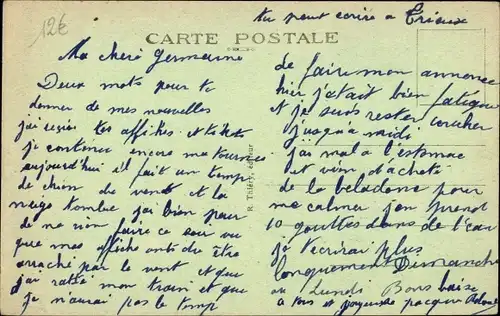 12€
tu peut ecrire a Trieux
CARTE POSTALE
Ma cheré Germaine
Deux mots pour te
donner de mes nouvelles
j'ai reçies tes affiches et
je continue encore ma tournee
aujourd'hui il fait un temps
de chien du vent et la
neige tombe j'ai bien peur
de ne rien faire ce soir vu
que mes affiche ont du être
arraché par le vent et que
j'ai raté mon train et que
je n'aurai pas le temp
R. Thiéry, éditeur
de faire mon annonce
hier j'etait bien fatigue
et je suis rester coucher
jusqu'a midi
j'ai mal a l'estomac
et vien d'acheté
de la beladone pour
me calmer j'en prend
10 gouttes dans de l'eau
je t'ecrirai plus
longuement Dimanche
ou Lundi Bons baise
a tous et joyeuse pacque